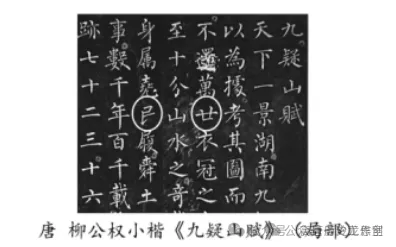 九疑山賦
天下一景湖南九
以為據考其圖而
不過萬廿衣冠之
至十分山水之奇
身属堯履舜土
事數千年百千載
跡七十二三十六
唐 柳公权小楷《九疑山赋》（局部）